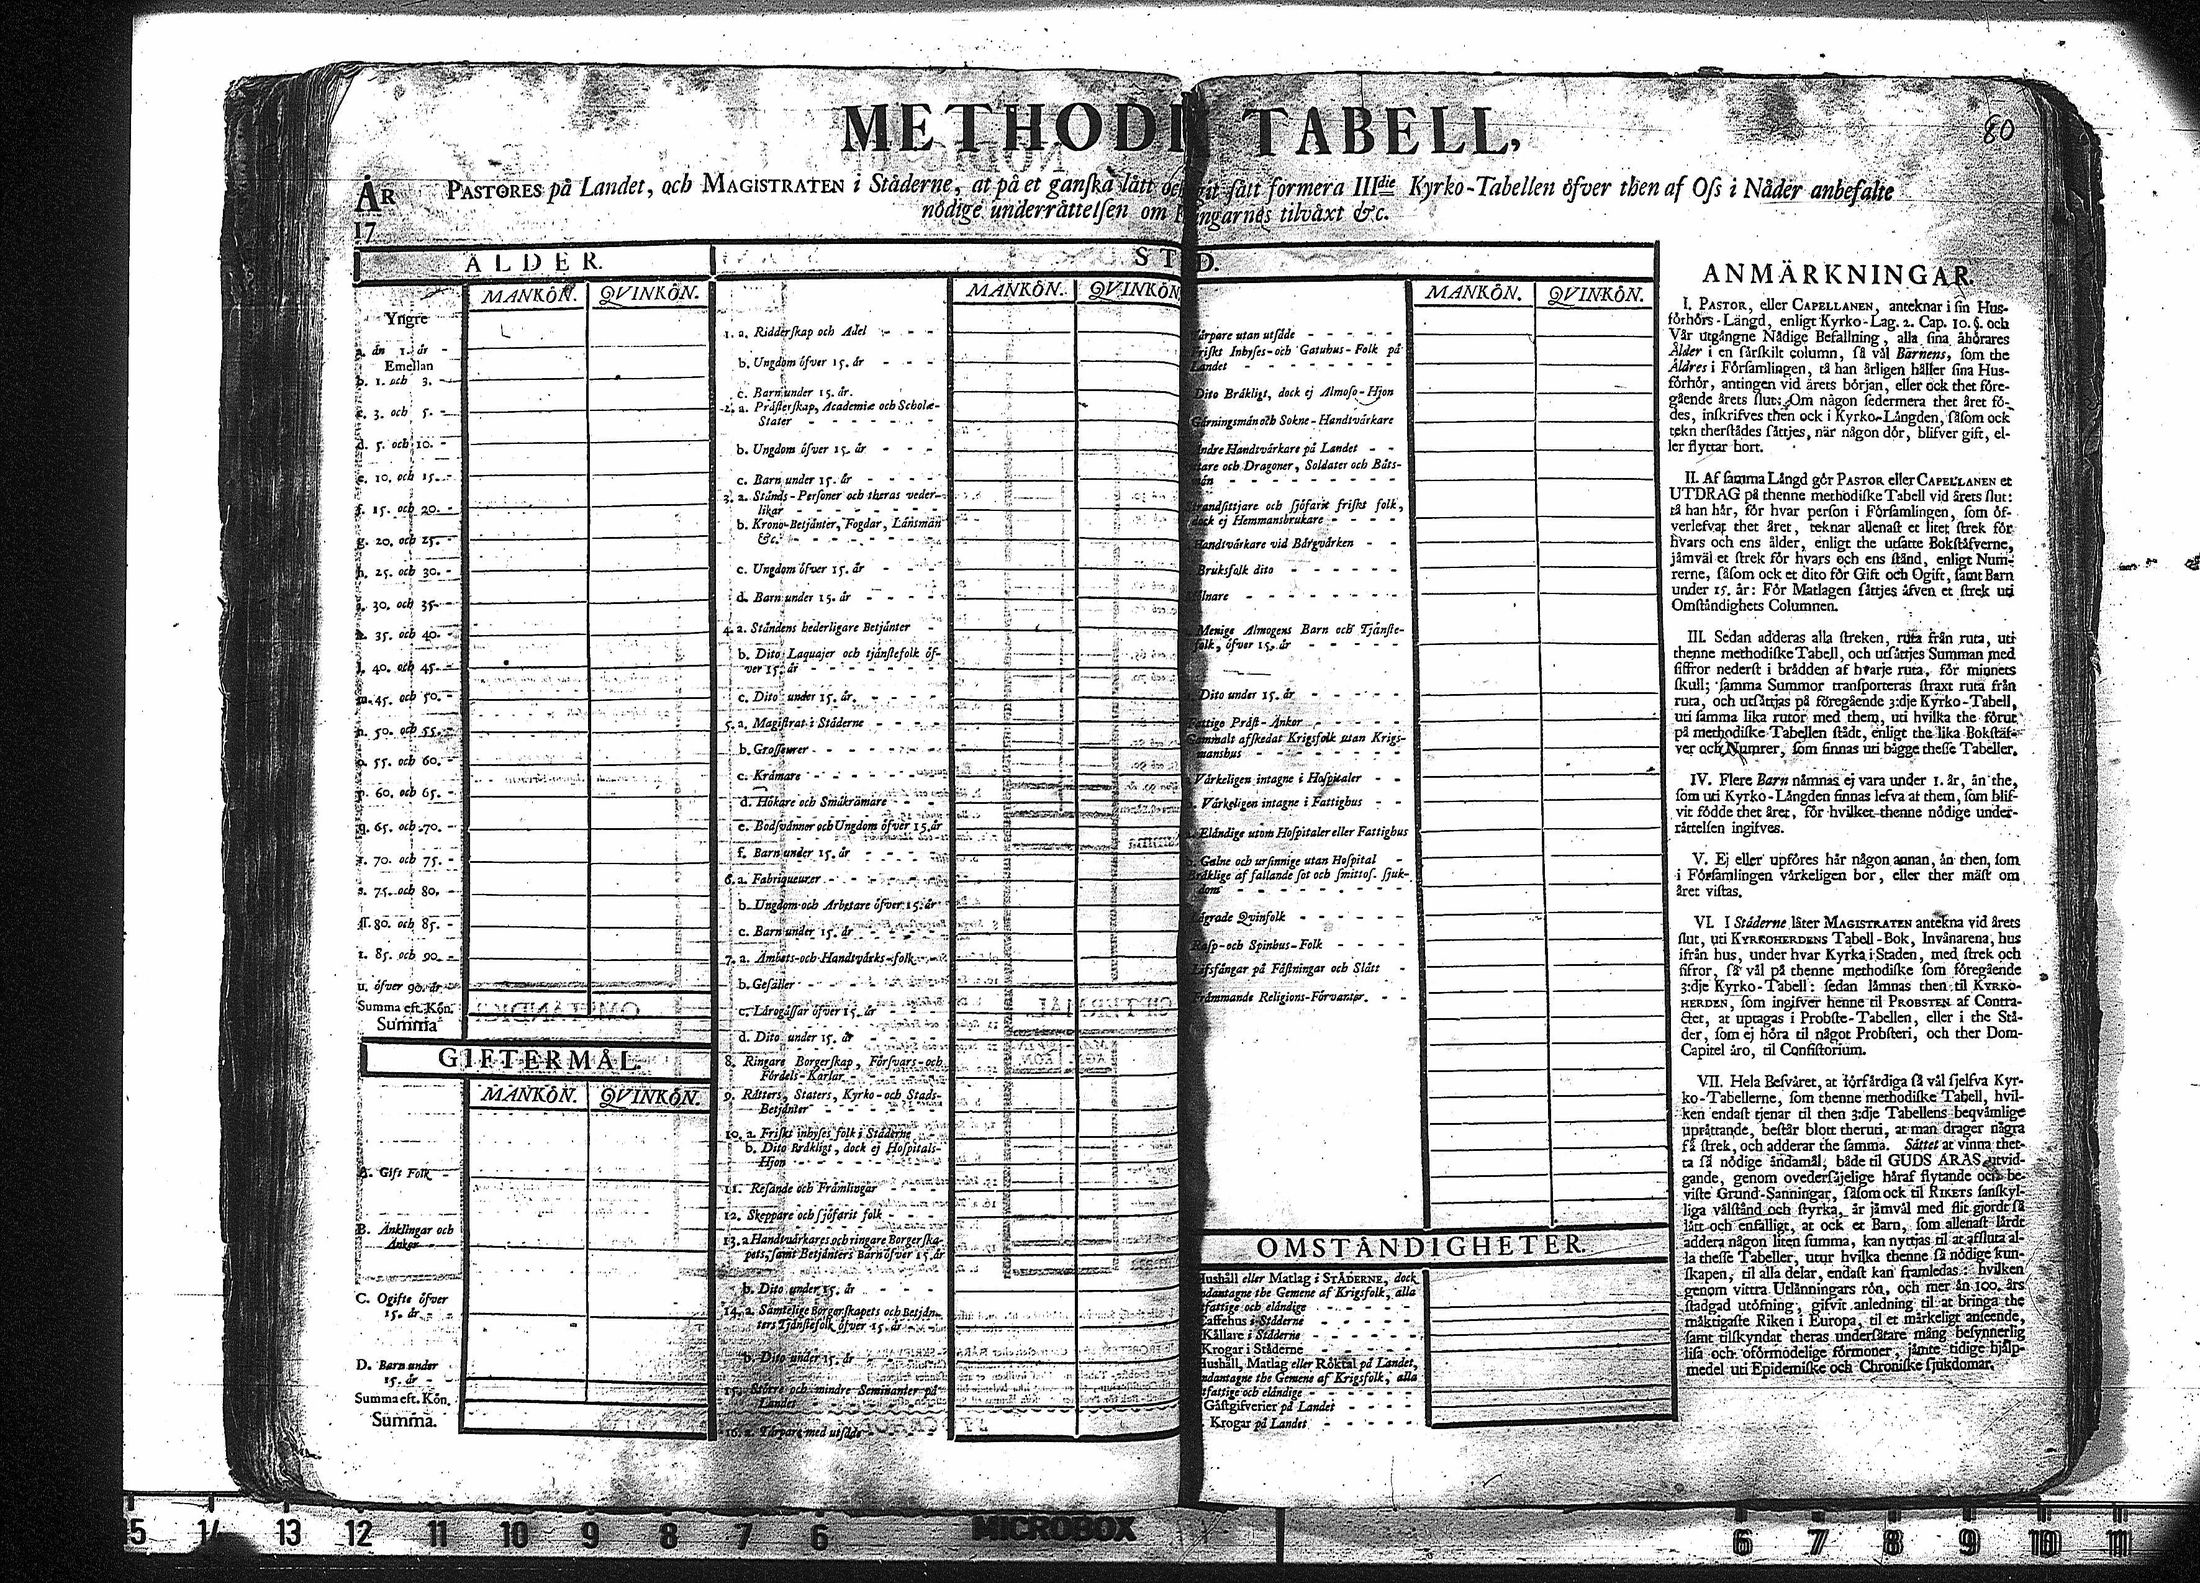 METHODI TABELL,
80
ÅR
17
PASTORES på Landet, och MAGISTRATEN i Ståderne, at på et ganſka lått sått formera IIIdie Kyrko-Tabellen öfver then af Oſs i Nåder anbefalte
nödige underråttelſen om ngarnes tilvåxt &c.
ÅLDER.
MANKÖN. QVINKÖN.
Yngre
a. än 1. år -
Emellan
b. 1. och 3. -
c. 3. och 5. -
d. 5. och 10. -
e. 10. och 15. -
f. 15. och 20. -
g. 20. och 25. -
h. 25. och 30. -
i. 30. och 35. -
k. 35. och 40. -
l. 40. och 45. -
m. 45. och 50. -
n. 50. och 55. -
o. 55. och 60. -
p. 60. och 65. -
q. 65. och 70. -
r. 70. och 75. -
s. 75. och 80. -
ſſ. 80. och 85. -
t. 85. och 90. -
u. öfver 90. år.
Summa eft. Kön.
Summa
GIFTERMÅL.
MANKÖN. QVINKÖN.
A. Gift Folk -
B. Änklingar och
Änkor -
C. Ogifte öfver
15. år - -
D. Barn under
15. år - -
Summa eft. Kön.
Summa.
ST D.
MANKÖN. QVINKÖN
1. a. Ridderſkap och Adel - - -
b. Ungdom öfver 15. år - - -
c. Barn under 15. år.
2. a. Pråſterſkap, Academiæ och Scholæ-
Stater - - - - - -
b. Ungdom öfver 15. år - - -
c. Barn under 15. år - - -
3. a. Stånds-Perſoner och theras veder-
likar - - - - - -
b. Krono-Betjänter, Fogdar, Länsmän
&c. - - - - - -
c. Ungdom öfver 15. år - - -
d. Barn under 15. år - - -
4. a. Ståndens hederligare Betjänter -
b. Dito Laquajer och tjänſtefolk öf-
ver 15. år - - - - -
c. Dito under 15. år. - - - -
5. a. Magiſtrat i Ståderne - - -
b. Groſſeurer - - - - -
c. Krämare - - - - -
d. Hökare och Småkrämare - - -
e. Bodſvänner och Ungdom öfver 15. år
f. Barn under 15. år - - -
6. a. Fabriqueurer - - - -
b. Ungdom och Arbetare öfver 15. år
c. Barn under 15. år - - -
7. a. Ämbets-och Handtvärks-folk -
b. Geſäller - - - - -
c. Lärogåſſar öfver 15. år - -
d. Dito under 15. år - - -
8. Ringare Borgerſkap, Förſvars-och
Fördels-Karlar - - - -
9. Råtters, Staters, Kyrko-och Stads-
Betjänter - - - - -
10. a. Friſkt inhyſes folk i Ståderne
b. Dito Bräkligt, dock ej Hoſpitals-
Hjon - - - - - -
11. Reſande och Främlingar - - -
12. Skeppare och ſjöfarit folk - - -
13. a. Handtvärkares och ringare Borgerſka-
pets, ſamt Betjänters Barn öfver 15. år
b. Dito under 15. år - - -
14. a. Samtelige Borgerſkapets och Betjän-
ters Tjänſtefolk öfver 15. år - -
b. Dito under 15. år - - -
15. Större och mindre Seminanter på
Landet - - - - - -
16. a. Torpare med utſäde - - -
MANKÖN. QVINKÖN.
rpare utan utſåde - - - - -
riſkt Inhyſes-och Gatuhus-Folk på
Landet - - - - - -
Dito Bräkligt, dock ej Almoſo-Hjon
Gårningsmän och Sokne-Handtvärkare
ndre Handtvärkare på Landet - -
tare och Dragoner, Soldater och Båts-
män - - - - - - -
trandſittjare och ſjöfarit friſkt folk,
dock ej Hemmansbrukare - - - -
Handtvärkare vid Bärgvärken - -
Bruksfolk dito - - - - -
ölnare - - - - - -
Menige Almogens Barn och Tjänſte-
folk, öfver 15. år - - - -
Dito under 15. år - - - -
Fattige Präſt-Änkor - - - -
Gammalt afſkedat Krigsfolk utan Krigs-
manshus - - - - - -
Värkeligen intagne i Hoſpitaler - -
Värkeligen intagne i Fattighus - -
Eländige utom Hoſpitaler eller Fattighus
Galne och urſinnige utan Hoſpital -
Bräklige af fallande ſot och ſmittoſ. ſjuk-
dom - - - - - - -
ägrade Qvinfolk - - - - -
Raſp-och Spinhus-Folk - - - -
Lifsfångar på Fåſtningar och Slått -
Främmande Religions-Förvanter. - -
OMSTÅNDIGHETER.
Hushåll eller Matlag i STÅDERNE, dock
ndantagne the Gemene af Krigsfolk, alla
tfattige och eländige - - - -
Caffehus i Ståderne - - - -
Källare i Ståderne - - - -
Krogar i Ståderne - - - -
Hushåll, Matlag eller Röktal på Landet,
ndantagne the Gemene af Krigsfolk, alla
tfattige och eländige - - - -
Gåſtgifverier på Landet - - -
Krogar på Landet - - - -
ANMÄRKNINGAR.
I. PASTOR, eller CAPELLANEN, anteknar i ſin Hus-
förhörs-Längd, enligt Kyrko-Lag. 2. Cap. 10. §. och
Vår utgångne Nådige Befallning, alla ſina åhörares
Ålder i en ſärſkilt column, ſå väl Barnens, ſom the
Äldres i Förſamlingen, tå han årligen håller ſina Hus-
förhör, antingen vid årets början, eller ock thet före-
gående årets ſlut: Om någon ſedermera thet året fö-
des, inſkrifves then ock i Kyrko-Längden, ſåſom ock
tekn therſtädes ſättjes, när någon dör, blifver gift, el-
ler flyttar bort.
II. Af ſamma Längd gör PASTOR eller CAPELLANEN et
UTDRAG på thenne methodiſke Tabell vid årets ſlut:
tå han här, för hvar perſon i Förſamlingen, ſom öf-
verlefvat thet året, teknar allenaſt et litet ſtrek för
hvars och ens ålder, enligt the utſatte Bokſtäfverne,
jämväl et ſtrek för hvars och ens ſtånd, enligt Num-
rerne, ſåſom ock et dito för Gift och Ogift, ſamt Barn
under 15. år: För Matlagen ſättjes äfven et ſtrek uti
Omſtändighets Columnen.
III. Sedan adderas alla ſtreken, ruta från ruta, uti
thenne methodiſke Tabell, och utſättjes Summan med
ſiffror nederſt i brädden af hvarje ruta, för minnets
ſkull; ſamma Summor transporteras ſtraxt ruta från
ruta, och utſättjas på föregående 3:dje Kyrko-Tabell,
uti ſamma lika rutor med them, uti hvilka the förut
på methodiſke Tabellen ſtådt, enligt the lika Bokſtäf-
ver och Numrer, ſom finnas uti bägge theſſe Tabeller.
IV. Flere Barn nämnas ej vara under 1. år, än the,
ſom uti Kyrko-Längden finnas lefva af them, ſom blif-
vit födde thet året, för hvilket thenne nödige under-
rättelſen ingifves.
V. Ej eller upföres här någon annan, än then, ſom
i Förſamlingen värkeligen bor, eller ther mäſt om
året viſtas.
VI. I Städerne låter MAGISTRATEN antekna vid årets
ſlut, uti KYRKOHERDENS Tabell-Bok, Invånarena, hus
ifrån hus, under hvar Kyrka i Staden, med ſtrek och
ſifror, ſå väl på thenne methodiſke ſom föregående
3:dje Kyrko-Tabell: ſedan lämnas then til KYRKO-
HERDEN, ſom ingifver henne til PROBSTEN af Contra-
ctet, at uptagas i Probſte-Tabellen, eller i the Stä-
der, ſom ej höra til något Probſteri, och ther Dom-
Capitel äro, til Conſiſtorium.
VII. Hela Beſväret, at förfärdiga ſå väl ſjelfva Kyr-
ko-Tabellerne, ſom thenne methodiſke Tabell, hvil-
ken endaſt tjenar til then 3:dje Tabellens beqvämlige
uprättande, beſtår blott theruti, at man drager några
få ſtrek, och adderar the ſamma. Sättet at vinna thet-
ta ſå nödige ändamål, både til GUDS ÄRAS utvid-
gande, genom ovederſäjelige häraf flytande och be-
viſte Grund-Sanningar, ſåſom ock til RIKETS ſanſkyl-
liga välſtånd och ſtyrka, är jämväl med flit gjordt ſå
lätt och enfalligt, at ock et Barn, ſom allenaſt lärdt
addera någon liten ſumma, kan nyttjas til at affluta al-
la theſſe Tabeller, utur hvilka thenne ſå nödige kun-
ſkapen, til alla delar, endaſt kan framledas: hvilken
genom vittra Utlänningars rön, och mer än 100. års
ſtadgad utöfning, gifvit anledning til at bringa the
mäktigaſte Riken i Europa, til et märkeligt anſeende,
ſamt tilſkyndat theras underſåtare mång beſynnerlig
liſa och oförmodelige förmoner, jämte tidige hjälp-
medel uti Epidemiſke och Chroniſke ſjukdomar.
15 14 13 12 11 10 9 8 7 6 MICROBOX 6 7 8 9 10 11